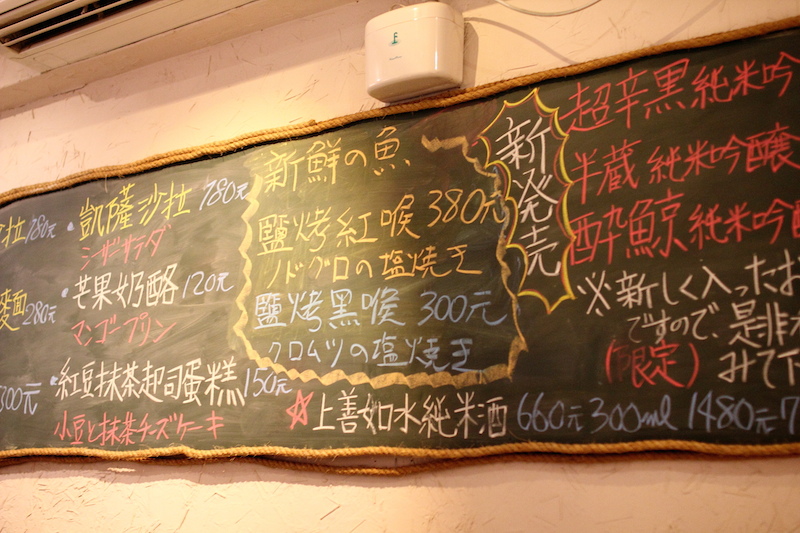 拉 180元
麵 280元
300元
凱薩沙拉 180元
シーザーサラダ
芒果奶酪 120元
マンゴープリン
紅豆抹茶起司蛋糕 150元
小豆と抹茶チーズケーキ
新鮮の魚
鹽烤紅喉 380元
ノドグロの塩焼き
鹽烤黑喉 300元
クロムツの塩焼き
☆上善如水純米酒 660元 300ml 1480元 7
新発売
超辛黒純米吟
半蔵 純米吟醸
酔鯨 純米吟
※新しく入ったお
ですので、是非
(限定) みて下